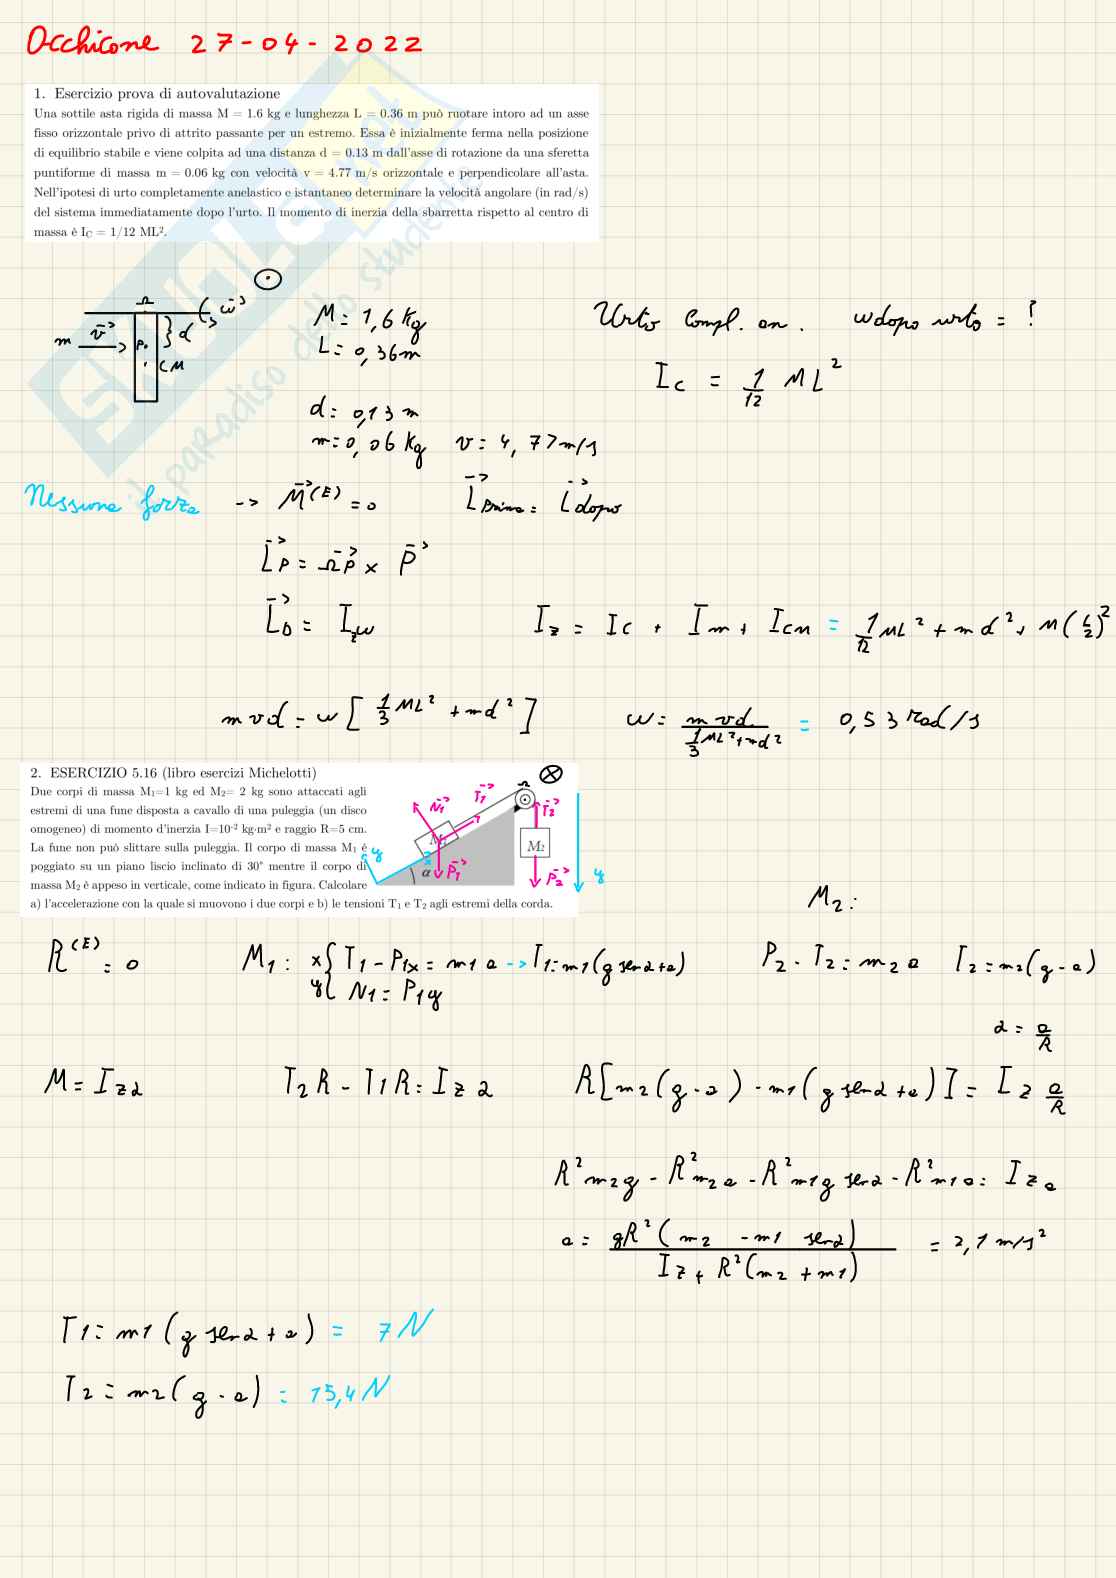 Occhicone 27-04-2022
1. Esercizio prova di autovalutazione
Una sottile asta rigida di massa M = 1.6 kg e lunghezza L = 0.36 m può ruotare intoro ad un asse
fisso orizzontale privo di attrito passante per un estremo. Essa è inizialmente ferma nella posizione
di equilibrio stabile e viene colpita ad una distanza d = 0.13 m dall'asse di rotazione da una sferetta
puntiforme di massa m = 0.06 kg con velocità v = 4.77 m/s orizzontale e perpendicolare all'asta.
Nell'ipotesi di urto completamente anelastico e istantaneo determinare la velocità angolare (in rad/s)
del sistema immediatamente dopo l'urto. Il momento di inerzia della sbarretta rispetto al centro di
massa è I_C = 1/12 ML².
SKUOLA.net
il paradiso dello studente
Ω ω→
m v→ P. } d
CM
M = 1,6 Kg
L = 0,36 m
d = 0,13 m
m = 0,06 Kg v = 4,77 m/s
Urto Compl. an. ω dopo urto = ?
I_C = 1/12 ML²
Nessuna forza -> M→^(E) = 0 L→prima = L→dopo
L→_P = ΩP→ × P→
L→_D = I_z ω I_z = I_C + I_m + I_CM = 1/12 ML² + md² + M(L/2)²
mvd = ω [1/3 ML² + md²] ω = mvd / (1/3 ML² + md²) = 0,53 rad/s
2. ESERCIZIO 5.16 (libro esercizi Michelotti)
Due corpi di massa M₁=1 kg ed M₂= 2 kg sono attaccati agli
estremi di una fune disposta a cavallo di una puleggia (un disco
omogeneo) di momento d'inerzia I=10⁻² kg·m² e raggio R=5 cm.
La fune non può slittare sulla puleggia. Il corpo di massa M₁ è
poggiato su un piano liscio inclinato di 30° mentre il corpo di
massa M₂ è appeso in verticale, come indicato in figura. Calcolare
a) l'accelerazione con la quale si muovono i due corpi e b) le tensioni T₁ e T₂ agli estremi della corda.
N₁→ T₁→ Ω T₂→
M₁ M₂
y x α P₁→ P₂→ y
M₂:
R^(E) = 0 M₁: x{ T₁ - P₁x = m₁a -> T₁ = m₁(g senα + a) P₂ - T₂ = m₂a T₂ = m₂(g - a)
y{ N₁ = P₁y
α = a/R
M = I_z α T₂R - T₁R = I_z α R[m₂(g - a) - m₁(g senα + a)] = I_z a/R
R²m₂g - R²m₂a - R²m₁g senα - R²m₁a = I_z a
a = gR²(m₂ - m₁ senα) / (I_z + R²(m₂ + m₁)) = 2,1 m/s²
T₁ = m₁(g senα + a) = 7 N
T₂ = m₂(g - a) = 15,4 N